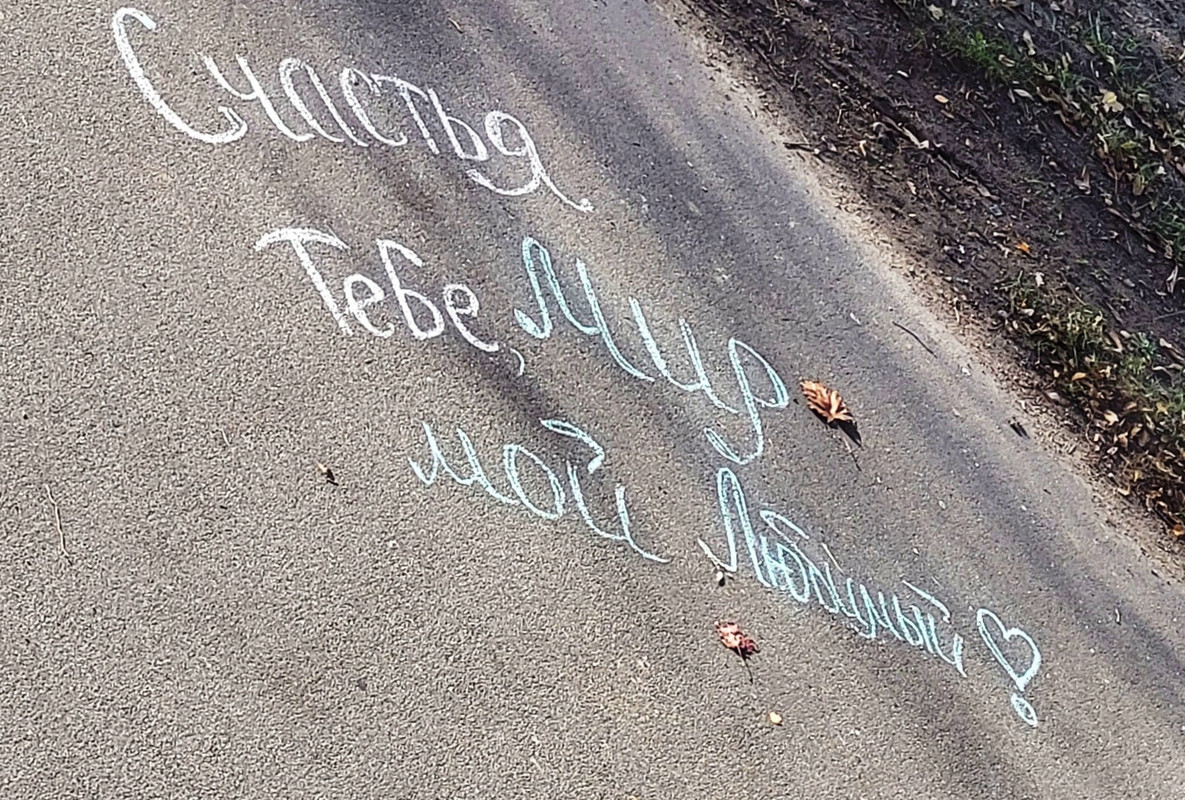 Счастья
Тебе, Мир
мой Любимый!